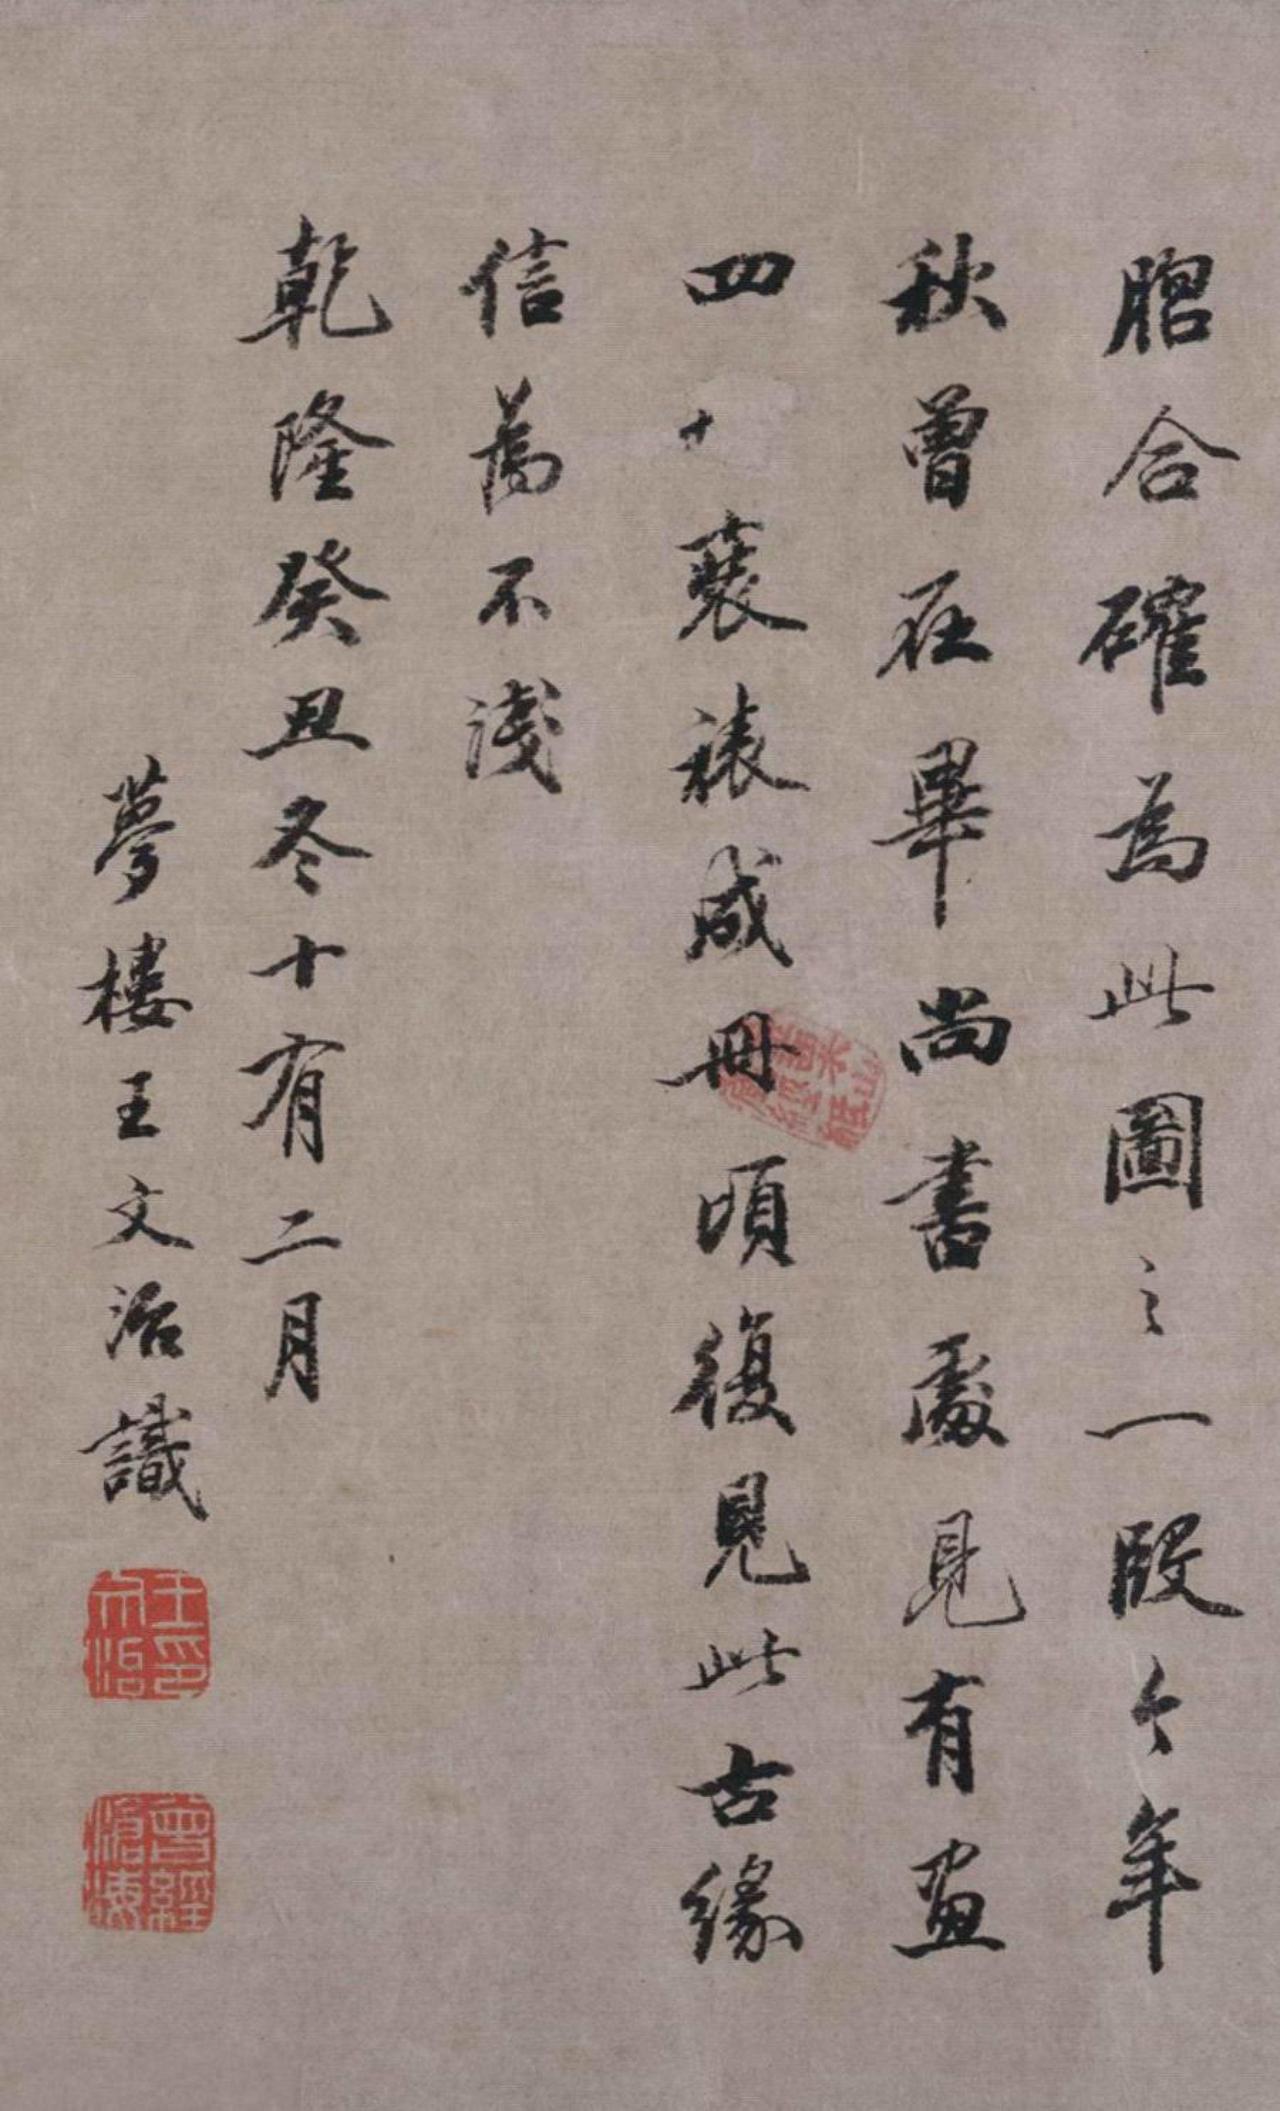 脗合確為此圖之一段今年
秋曾在畢尚書處見有畫
四十袠裱成冊頃復見此古緣
信為不淺
乾隆癸丑冬十有二月
夢樓王文治識
王文治印
曾經滄海